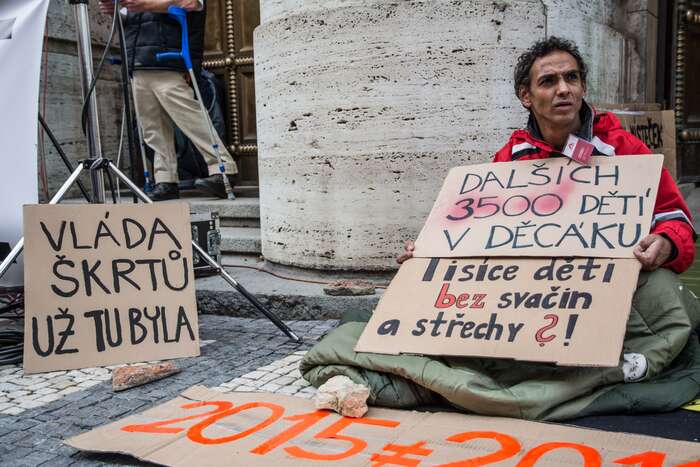 VLÁDA
ŠKRTŮ
UŽ TU BYLA
DALŠÍCH
3500 DĚTÍ
V DĚCÁKU
Tisíce dětí
bez svačin
a střechy ?!
2015 ≠